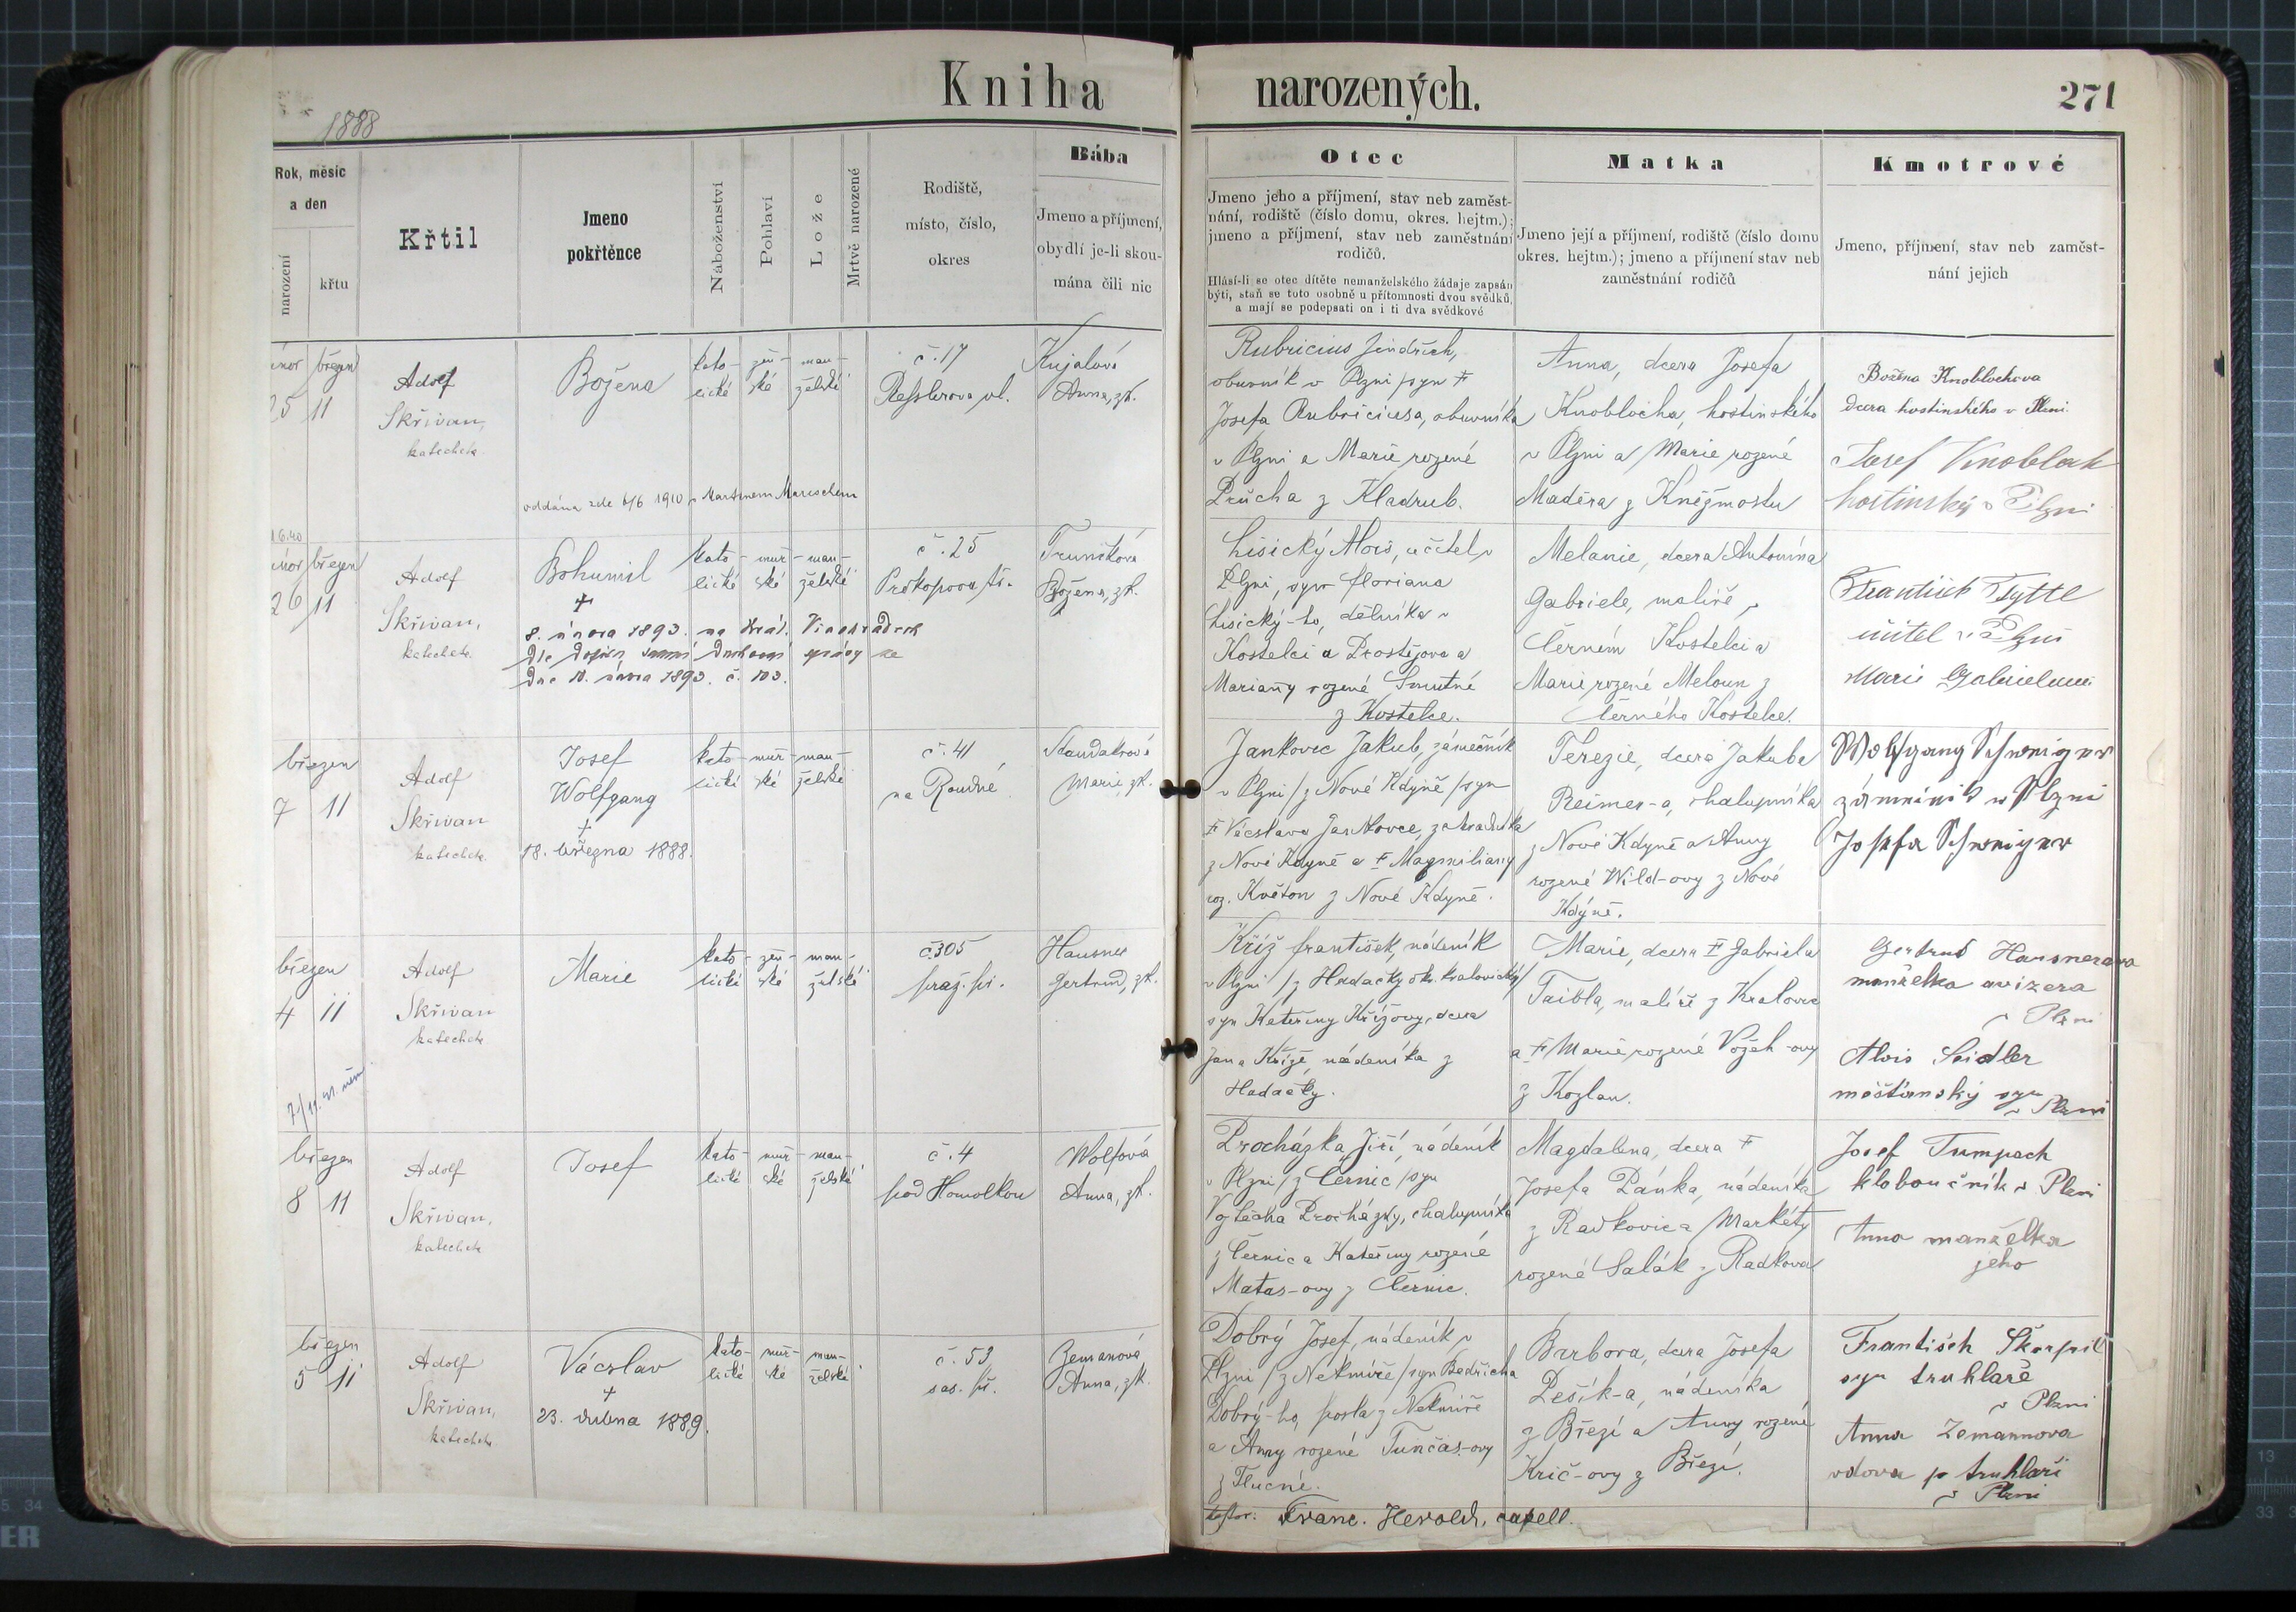 Kniha narozených.
271
1888
Rok, měsíc
a den
narození
křtu
Křtil
Jmeno
pokřtěnce
Náboženství
Pohlaví
Lože
Mrtvě narozené
Rodiště,
místo, číslo,
okres
Bába
Jmeno a příjmení,
obydlí je-li skou-
mána čili nic
Otec
Jmeno jeho a příjmení, stav neb zaměst-
nání, rodiště (číslo domu, okres. hejtm.);
jmeno a příjmení, stav neb zaměstnání
rodičů.
Hlásí-li se otec dítěte nemanželského žádaje zapsán
býti, staň se toto osobně u přítomnosti dvou svědků,
a mají se podepsati on i ti dva svědkové
Matka
Jmeno její a příjmení, rodiště (číslo domu
okres. hejtm.); jmeno a příjmení stav neb
zaměstnání rodičů
Kmotrové
Jmeno, příjmení, stav neb zaměst-
nání jejich
únor březen
25 11
Adolf
Skřivan,
katechet
Božena
oddána zde 6/6 1910 s Martinem
kato-
lické
žen-
ské
man-
želské
č. 17
Resslerova ul.
Kujalová
Anna, zk.
Rubricius Jindřich,
obuvník v Plzni syn
Josefa Rubriciusa, obuvníka
v Plzni a Marie rozené
Průcha z Kladrub.
Anna, dcera Josefa
Knoblocha, hostinského
v Plzni a Marie rozené
Maděra z Kněžmostu
Božena Knoblochova
dcera hostinského v Plzni
Josef Knobloch
hostinský v Plzni
únor březen
26 11
Adolf
Skřivan,
katechet
Bohumil
+
8. února 1893. na Král. Vinohradech
dle dopisu duchovní správy
dne 10. února 1893. č. 103.
kato-
lické
muž-
ské
man-
želské
č. 25
Prokopova tř.
Trunčková
Božena, zk.
Lisický Alois, učitel v
Plzni, syn Floriana
Lisický-ho, dělníka v
Kostelci a Prostějova a
Mariany rozené Smutné
z Kostelce.
Melanie, dcera Antonína
Gabriele, malíře v
Černém Kostelci a
Marie rozené Meloun z
Černého Kostelce.
František
učitel v Plzni
Marie
březen
7 11
Adolf
Skřivan
katechet
Josef
Wolfgang
+
18. března 1888.
kato-
lické
muž-
ské
man-
želské
č. 41
na Roudné
Marie, zk.
Jankovec Jakub, zámečník
v Plzni / z Nové Kdyně / syn
Václava Jankovce, zahradníka
z Nové Kdyně a Maxmiliany
roz. Květon z Nové Kdyně.
Terezie, dcera Jakuba
Reimer-a, chalupníka
z Nové Kdyně a Anny
rozené Wild-ovy z Nové
Kdýně.
Wolfgang Schweiger
zámečník v Plzni
Josefa Schweiger
březen
4 11
Adolf
Skřivan
katechet
Marie
kato-
lické
žen-
ské
man-
želské
č. 305
praž. př.
Hausner
Gertrud, zk.
Kříž František, nádeník
v Plzni / z Hadačky ok. kralovický /
syn Kateřiny Křížovy, dcera
Jana Kříže, nádeníka z
Hadačky.
Marie, dcera Gabriela
Taibla, malíře z Kralovic
a Marie rozené Vožeh-ovy
z Kozlan.
Gertrud Hausnerova
manželka avizera
v Plzni
Alois Seidler
měšťanský syn
v Plzni
březen
8 11
Adolf
Skřivan,
katechet
Josef
kato-
lické
muž-
ské
man-
želské
č. 4
pod Homolkou
Wolfová
Anna, zk.
Procházka Jiří, nádeník
v Plzni / z Černic / syn
Vojtěcha Procházky, chalupníka
z Černic a Kateřiny rozené
Matas-ovy z Černic.
Magdalena, dcera
Josefa Pánka, nádeníka
z Radkovic a Markéty
rozené Salák z Radkova
Josef Tumpach
kloboučník v Plzni
Anna manželka
jeho
březen
5 11
Adolf
Skřivan,
katechet
Vácslav
+
23. dubna 1889.
kato-
lické
muž-
ské
man-
želské
č. 53
sas. př.
Zemanová
Anna, zk.
Dobrý Josef, nádeník v
Plzni / z Nekmíře / syn Bedřicha
Dobrý-ho, posla z Nekmíře
a Anny rozené Tunčas-ovy
z Tlucné.
Barbora, dcera Josefa
Pešík-a, nádeníka
z Březí a Anny rozené
Krič-ovy z Březí.
František Škarpil
syn truhláře
v Plzni
Anna Zemannova
vdova po truhláři
v Plzni
Franc. Herold, capell.